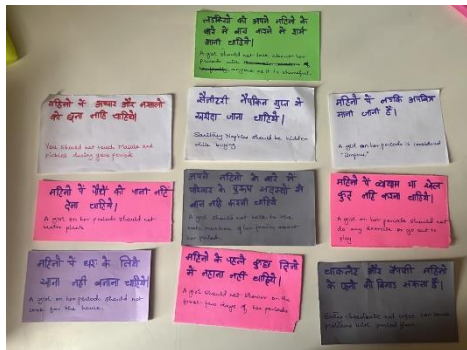 लडकियों को अपने महिने के
बारे में बात करने में शर्म
आना चाहिये।
A girl should not talk about her
periods with
anyone as it is shameful.
महिनों में अच्चार और मसालों
को छुना नहि चाहिये।
You should not touch Masala and
pickles during your period
सैनीटरी नैपकिन गुप्त में
खरीदा जाना चाहिये।
Sanitary Napkins should be hidden
while buying
महिनों में लडकि अपवित्र
माना जाता है।
A girl on her periods is considered
"Impure"
महिनों में पौधों को पानी नहि
देना चाहिये।
A girl on her periods should not
water plants
अपने महिने के बारे में
परिवार के पुरुष सदस्यों से
बात नहीं करनी चाहिये
A girl should not talk to the
male members of her family about
her period.
महिनों में व्यायाम या खेल
कुद नहि करना चाहिये।
A girl on her periods should not
do any exercise or go out to
play
महिनों में घर के लिये
खाना नहीं बनाना चाहिये।
A girl on her periods should not
cook for the house.
महिनों के पहले कुछ दिनों
में नहाना नहीं चाहिये।
A girl should not shower on the
first few days of her periods
चाकलेट और कॉफी महिनों
के को बिगाड सकता है।
Eating chocolate and coffee can cause
problems with period flow